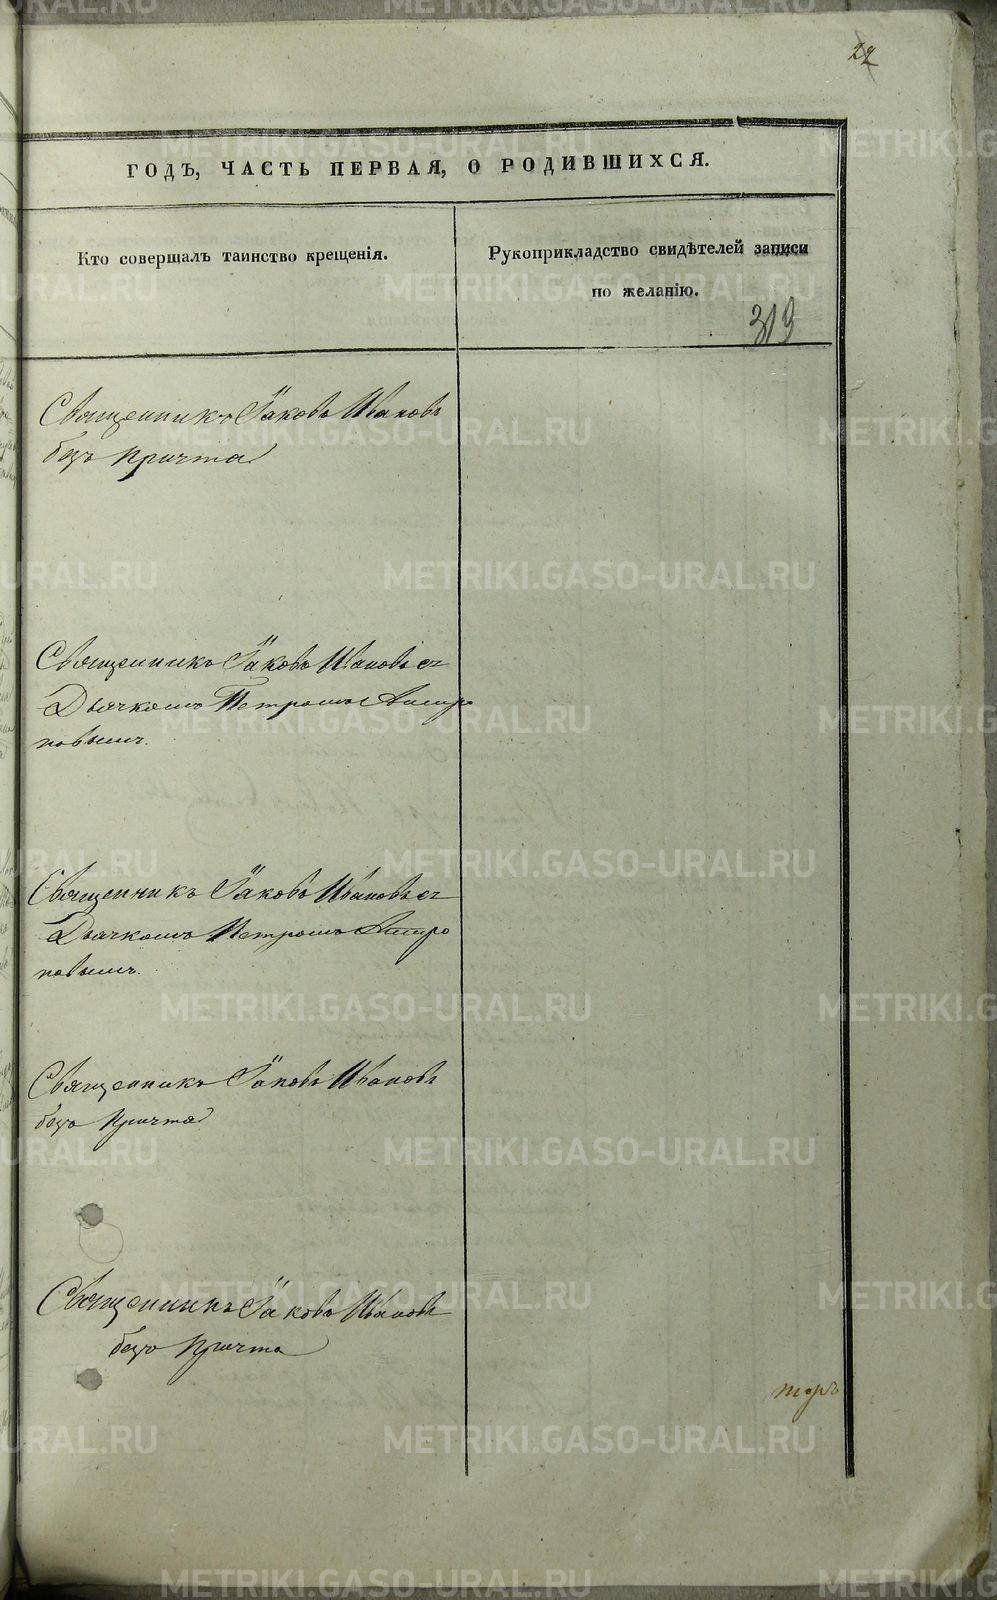 22
ГОДЪ, ЧАСТЬ ПЕРВАЯ, О РОДИВШИХСЯ.
Кто совершалъ таинство крещенія.
Рукоприкладство свидѣтелей записи
по желанію.
319
Священникъ Іаковъ Ивановъ
безъ Причта
Священникъ Іаковъ Ивановъ съ
Дьячкомъ Петромъ
новымъ.
Священникъ Іаковъ Ивановъ съ
Дьячкомъ Петромъ
новымъ.
Священникъ Іаковъ Ивановъ
безъ Причта
Священникъ Іаковъ Ивановъ
безъ Причта
METRIKI.GASO-URAL.RU